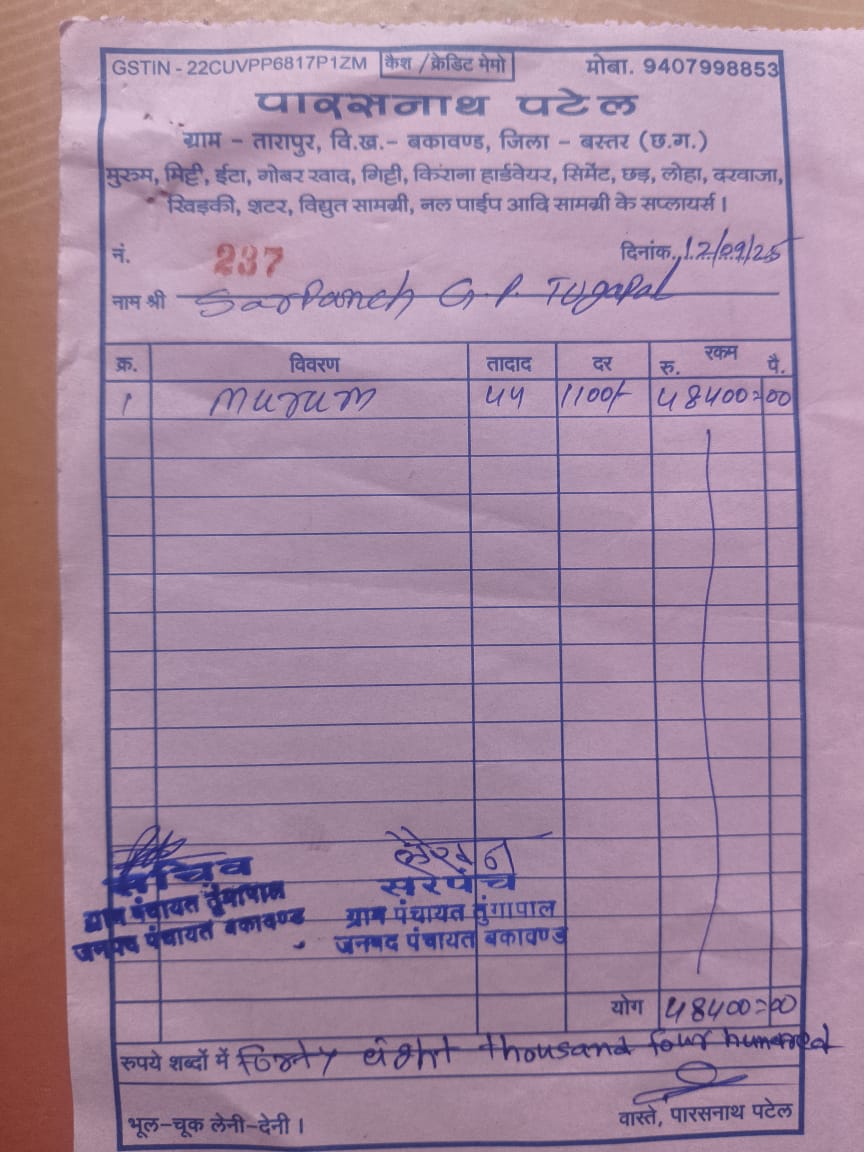 GSTIN - 22CUVPP6817P1ZM कैश / क्रेडिट मेमो मोबा. 9407998853
पारसनाथ पटेल
ग्राम - तारापुर, वि.ख.- बकावण्ड, जिला - बस्तर (छ.ग.)
मुरुम, मिट्टी, ईटा, गोबर खाद, गिट्टी, किराना हार्डवेयर, सिमेंट, छड़, लोहा, दरवाजा,
खिड़की, शटर, विद्युत सामग्री, नल पाईप आदि सामग्री के सप्लायर्स।
नं. 237 दिनांक. 12/09/25
नाम श्री Sarpanch G.P. Tugapal
क्र. विवरण तादाद दर रकम रु. पै.
1 murum 44 1100/- 48400=00
सचिव
ग्राम पंचायत तुंगापाल
जनपद पंचायत बकावण्ड
सरपंच
ग्राम पंचायत तुंगापाल
जनपद पंचायत बकावण्ड
योग 48400=00
रुपये शब्दों में Forty eight thousand four hundred
भूल-चूक लेनी-देनी। वास्ते, पारसनाथ पटेल